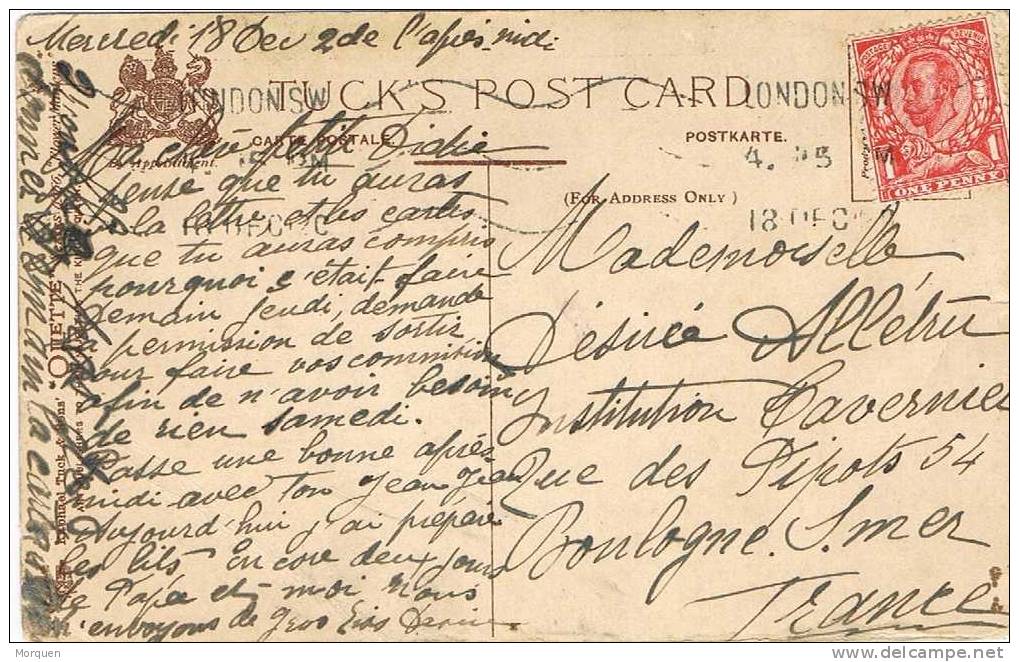 Mercredi 18 Dec 2 de l'après midi
TUCK'S POST CARD
CARTE POSTALE.
POSTKARTE.
By Appointment.
(FOR ADDRESS ONLY)
LONDON SW
LONDON SW
4. 15
18 DEC
POSTAGE REVENUE
1 1
ONE PENNY
petit Didie
pense que tu auras
la lettre et les cartes
que tu auras compris
pourquoi c'était faire
Demain Jeudi, demande
la permission de sortir
pour faire vos commitions
afin de n'avoir besoin
de rien samedi.
Passe une bonne après
midi avec ton Jean Jean
aujourd'hui j'ai préparé
les lits En core deux jours
Papa et moi nous
t'envoyons de gros
Mademoiselle
Désirée Allétru
Institution Tavernier
Rue des Pipots 54
Boulogne S. mer
France
Raphael Tuck & Sons' "OILETTE"
Morquen